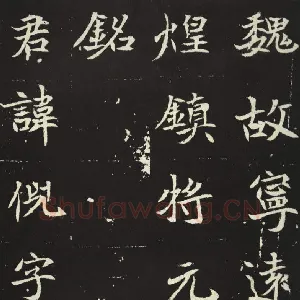 魏故寧遠
煌鎮將元
銘
君諱倪字
shufawang.CN